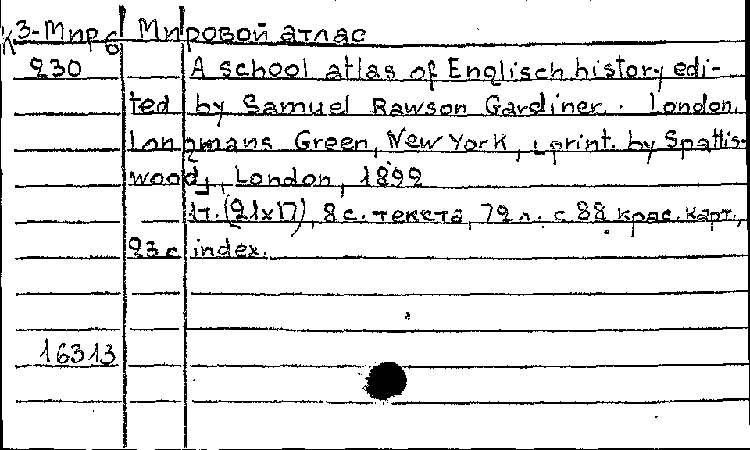 К3-Мир6 Мировой атлас
230 A school atlas of Englisch history edi-
ted by Samuel Rawson Gardiner. London,
Longmans Green, New York, [print. by Spattis-
wood], London, 1892
1т. (21x17), 8 с. текста, 72 л. с 88 крас. карт.,
23 с index.
16313